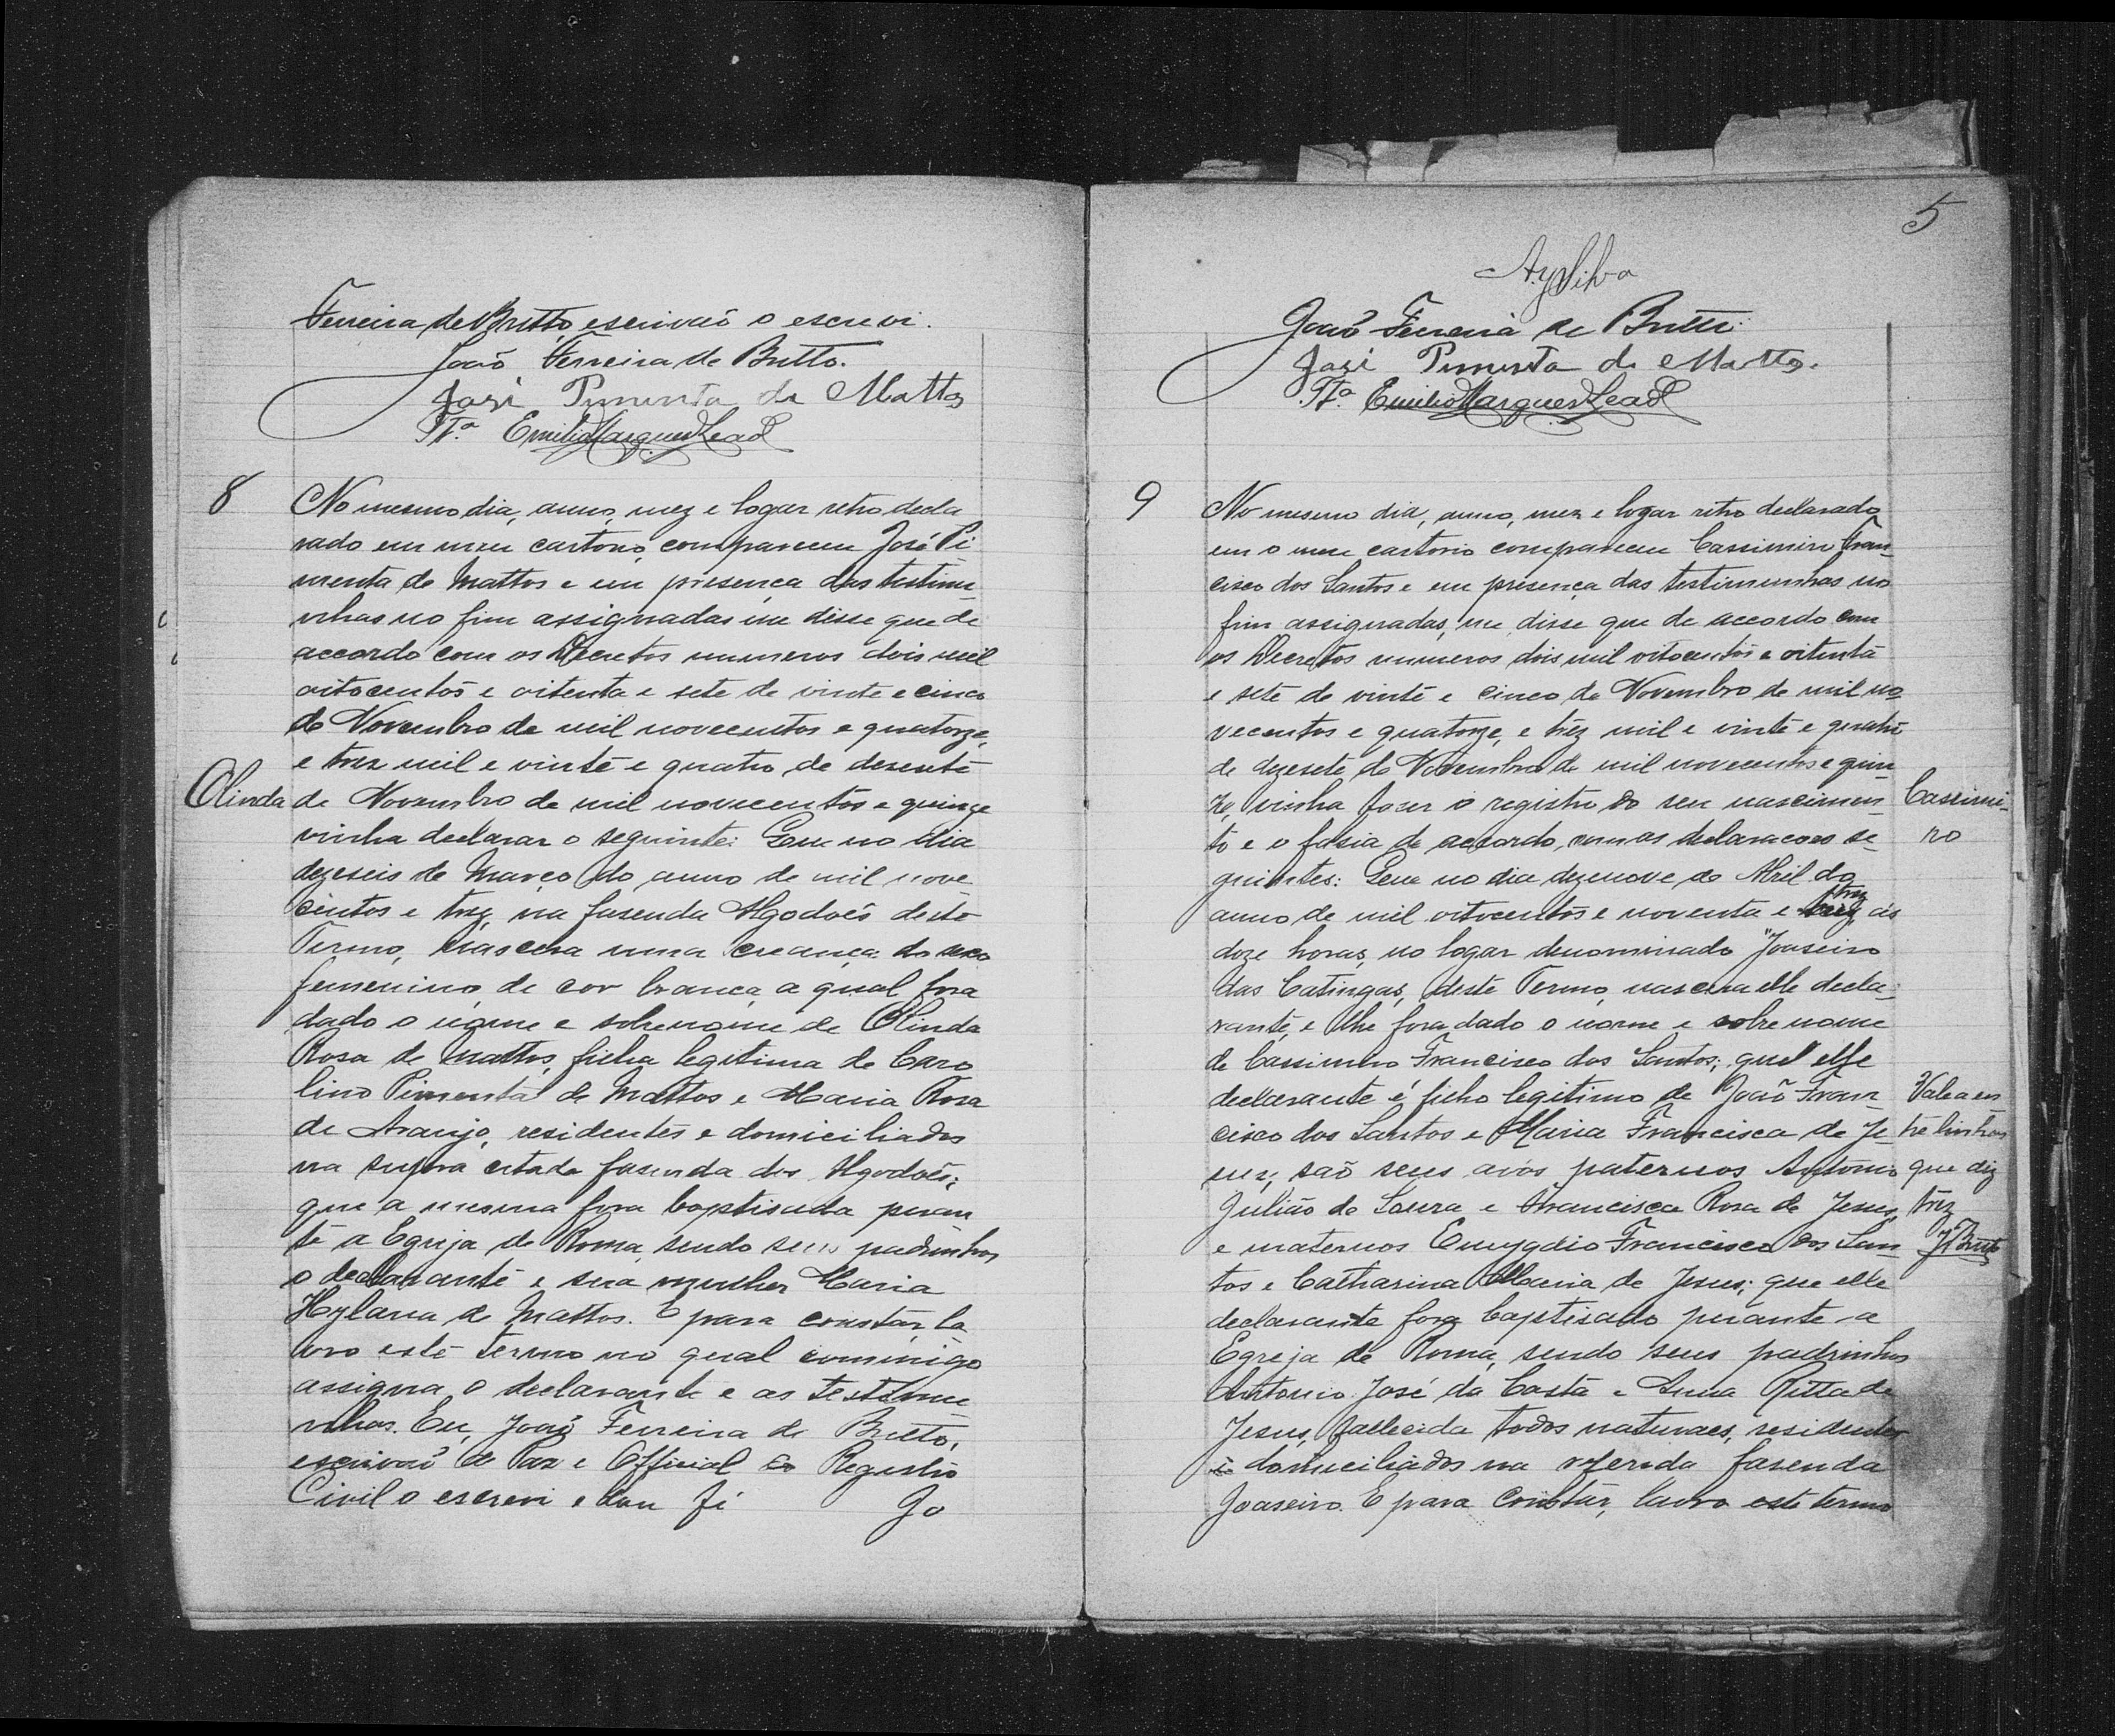 Ferreira de Britto, escrivão o escrevi.
João Ferreira de Britto.
José Pimenta de Mattos
Tª. Emilio Marques Leal
8
No mesmo dia, anno, mez e logar retro decla
rado em meu cartorio, compareceu José Pi
menta de Mattos e em presença das testimu
nhas no fim assignadas me disse que de
accordo com os Decretos numeros dois mil
oitocentos e oitenta e sete de vinte e cinco
de Novembro de mil novecentos e quatorze,
e trez mil e vinte e quatro, de desesete
Olinda
de Novembro de mil novecentos e quinze
vinha declarar o seguinte: Que no dia
dezeseis de Março do anno de mil nove
centos e trez, na fasenda Algodoẽs deste
Termo, nascera uma creança do sexo
femenino, de cor branca, a qual fora
dado o nome e sobrenome de Olinda
Rosa de Mattos, filha legitima de Caro
lino Pimenta de Mattos e Maria Rosa
de Araujo, residentes e domiciliados
na supra citada fasenda dos Algodoẽs;
que a mesma fora baptisada peran
te a Egreja de Roma, sendo seus padrinhos
o declarante e sua mulher Maria
Hylaria de Mattos. E para constar, la
vro este termo no qual commigo
assigna o declarante e as testimu
nhas. Eu, João Ferreira de Britto,
escrivão de Paz e Official do Registro
Civil o escrevi e dou fé
Jo
5
João Ferreira de Britto.
José Pimenta de Mattos.
Tª. Emilio Marques Leal
9
No mesmo dia, anno, mez e logar retro declarado
em o meu cartorio compareceu Cassimiro Fran
cisco dos Santos e em presença das testimunhas no
fim assignadas, me disse que de accordo com
os Decretos numeros dois mil oitocentos e oitenta
e sete de vinte e cinco de Novembro de mil no
vecentos e quatorze, e trez mil e vinte e quatro
de dezesete de Novembro de mil novecentos e quin
ze, vinha faser o registro do seu nascimen
Cassimi-
ro
to e o fasia de accordo, com as declaracoes se
guintes: Que no dia dezenove de Abril do
trez
anno de mil oitocentos e noventa e ás
doze horas, no logar denominado "Joaseiro
das Catingas, deste Termo, nascera elle decla-
rante, e lhe fora dado o nome e sobre nome
de Cassimiro Francisco dos Santos; que elle
declarante é filho legitimo de João Fran
cisco dos Santos e Maria Francisca de Je
sus, são seus avós paternos Antonio
Julião de Sousa e Francisca Rosa de Jesus,
e maternos Emygdio Francisco dos San
tos e Catharina Maria de Jesus; que elle
Vale a en
tre linhas
que diz
trez
JBritto
declarante fora baptisado perante a
Egreja de Roma, sendo seus padrinhos
Antonio José da Costa e Anna Ritta de
Jesus, fallecida todos naturaes, residentes
e domiciliados na referida fasenda
Joaseiro. E para constar, lavro este termo